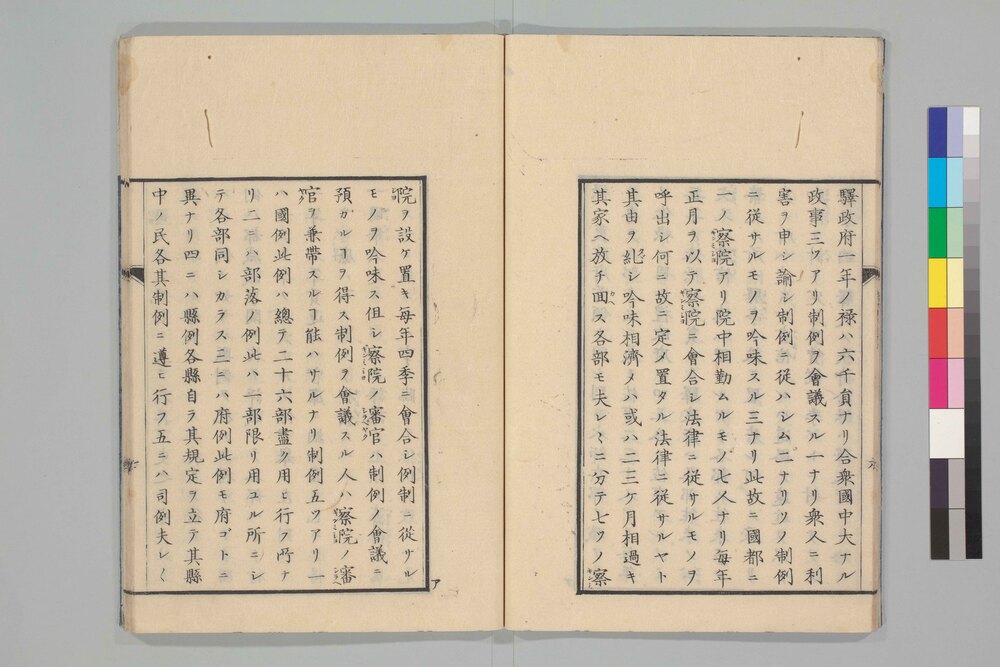 驛政府一年ノ禄ハ六千負ナリ合衆國中大ナル
政事三ツアリ制例ヲ會議スル一ナリ衆人ニ利
害ヲ申シ諭シ制例ニ從ハシム二ナリソノ制例
ニ從サルモノヲ吟味スル三ナリ此故ニ國都ニ
一ノ察院アリ院中相勤ムルモノ七人ナリ毎年
正月ヲ以テ察院ニ會合シ法律ニ從サルモノヲ
呼出シ何ニ故ニ定メ置タル法律ニ從サルヤト
其由ヲ糺シ吟味相濟メハ或ハ二三ケ月相過キ
其家ヘ放チ回ス各部モ夫レ〱ニ分テ七ツノ察
院ヲ設ケ置キ毎年四季ニ會合シ例制ニ從サル
モノヲ吟味ス伹シ察院ノ審官ハ制例ノ會議ニ
預カルヿヲ得ス制例ヲ會議スル人ハ察院ノ審
官ヲ兼帶スルヿ能ハサルナリ制例五ツアリ一
ハ國例此例ハ總テ二十六部盡ク用ヒ行フ所ナ
リ二ニハ部落ノ例此ハ一部限リ用ユル所ニシ
テ各部同シカラス三ニハ府例此例モ府ゴトニ
異ナリ四ニハ縣例各縣自ラ其規定ヲ立テ其縣
中ノ民各其制例ニ遵ヒ行フ五ニハ司例夫レ〱